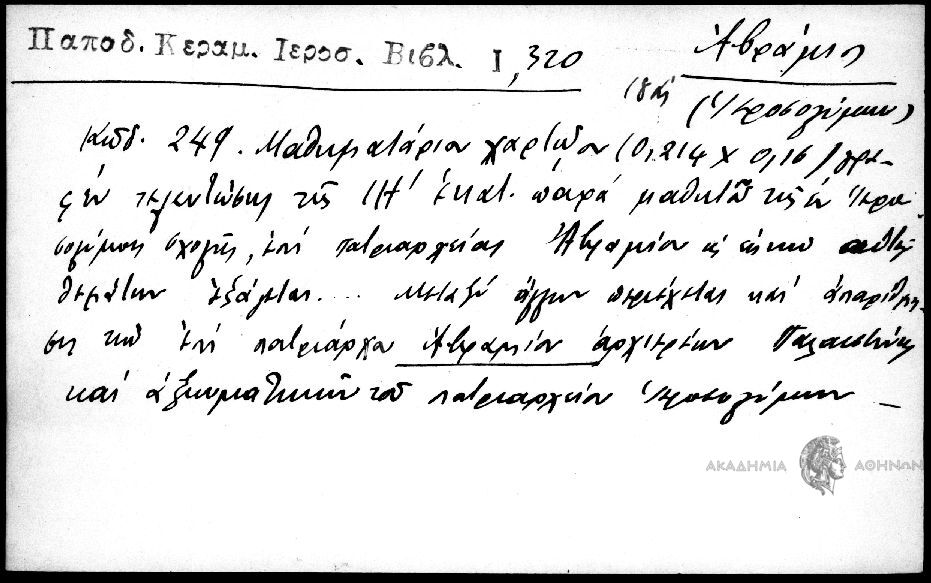 Παποδ. Κεραμ. Ιεροσ. Βιβλ. I, 320
Ἀβράμιος
(Ἱεροσολύμων)
Κωδ. 249. Μαθηματάριον χαρτῷον (0,214 x 0,16) γρα-
ἐν τελευταίοις τῆς ΙΗ΄ ἑκατ. παρὰ μαθητοῦ τῆς ἐν Ἱερο
σολύμοις σχολῆς, ἐπὶ πατριαρχείας Ἀβραμίου
θεμάτων ἐξάγεται.... Μεταξὺ ἄλλων περιέχεται καὶ ἀπαρίθμη-
σις τῶν ἐπὶ πατριάρχου Ἀβραμίου ἀρχιερέων Παλαιστίνης
καὶ ἀξιωματικῶν τοῦ πατριαρχείου Ἱεροσολύμων —
ΑΚΑΔΗΜΙΑ ΑΘΗΝΩΝ